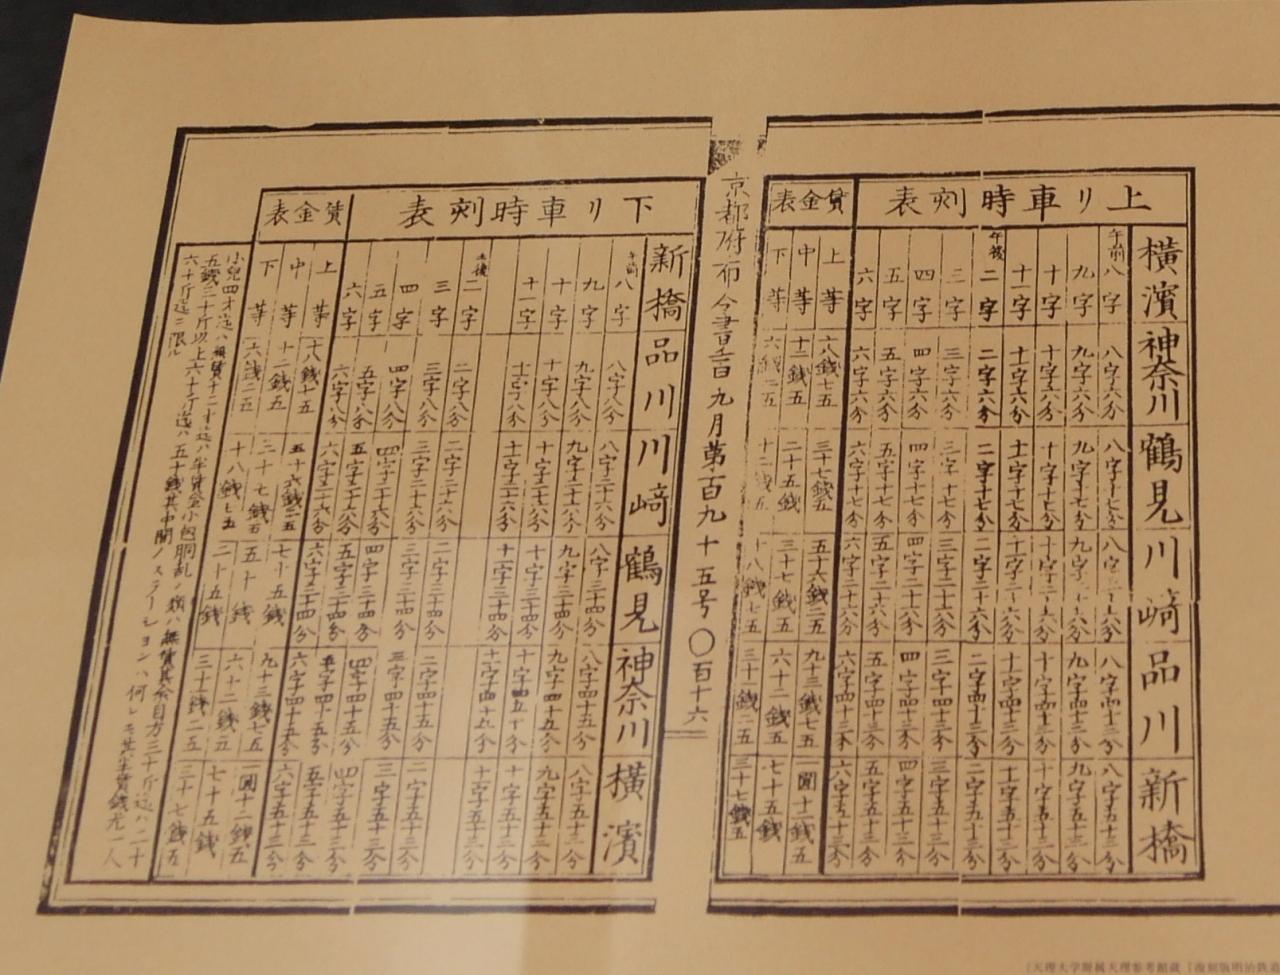 上リ車時刻表
賃金表
横濱
神奈川
鶴見
川﨑
品川
新橋
午前八字
八字六分
八字十七分
八字二十六分
八字四十三分
八字五十三分
九字
九字六分
九字十七分
九字二十六分
九字四十三分
九字五十三分
十字
十字六分
十字十七分
十字二十六分
十字四十三分
十字五十三分
十一字
十一字六分
十一字十七分
十一字二十六分
十一字四十三分
十一字五十三分
午後二字
二字六分
二字十七分
二字二十六分
二字四十三分
二字五十三分
三字
三字六分
三字十七分
三字二十六分
三字四十三分
三字五十三分
四字
四字六分
四字十七分
四字二十六分
四字四十三分
四字五十三分
五字
五字六分
五字十七分
五字二十六分
五字四十三分
五字五十三分
六字
六字六分
六字十七分
六字二十六分
六字四十三分
六字五十三分
上等
十八錢七五
三十七錢五
五十六錢二五
九十三錢七五
一圓十二錢五
中等
十二錢五
二十五錢
三十七錢五
六十二錢五
七十五錢
下等
六錢二五
十二錢五
十八錢七五
三十一錢二五
三十七錢五
京都府布令書壬申九月第百九十五号〇百十六
下リ車時刻表
賃金表
新橋
品川
川﨑
鶴見
神奈川
横濱
午前八字
八字八分
八字二十六分
八字三十四分
八字四十五分
八字五十三分
九字
九字八分
九字二十六分
九字三十四分
九字四十五分
九字五十三分
十字
十字八分
十字二十六分
十字三十四分
十字四十五分
十字五十三分
十一字
十一字八分
十一字二十六分
十一字三十四分
十一字四十五分
十一字五十三分
午後二字
二字八分
二字二十六分
二字四十五分
二字五十三分
三字
三字八分
三字二十六分
三字三十四分
三字四十五分
三字五十三分
四字
四字八分
四字二十六分
四字三十四分
四字四十五分
四字五十三分
五字
五字八分
五字二十六分
五字三十四分
五字四十五分
五字五十三分
六字
六字八分
六字二十六分
六字三十四分
六字四十五分
六字五十三分
上等
十八錢七五
五十六錢二五
七十五錢
九十三錢七五
一圓十二錢五
中等
十二錢五
三十七錢五
五十錢
六十二錢五
七十五錢
下等
六錢二五
十八錢七五
二十五錢
三十一錢二五
三十七錢五
小兒四才迄ハ無賃十二才迄ハ半賃金小包胴乱ノ類ハ無賃其余目方三十斤迄ハ二十
五錢三十斤以上六十斤迄ハ五十錢其中間ノステーションハ何レモ半賃錢尤一人
六十斤迄ニ限ル